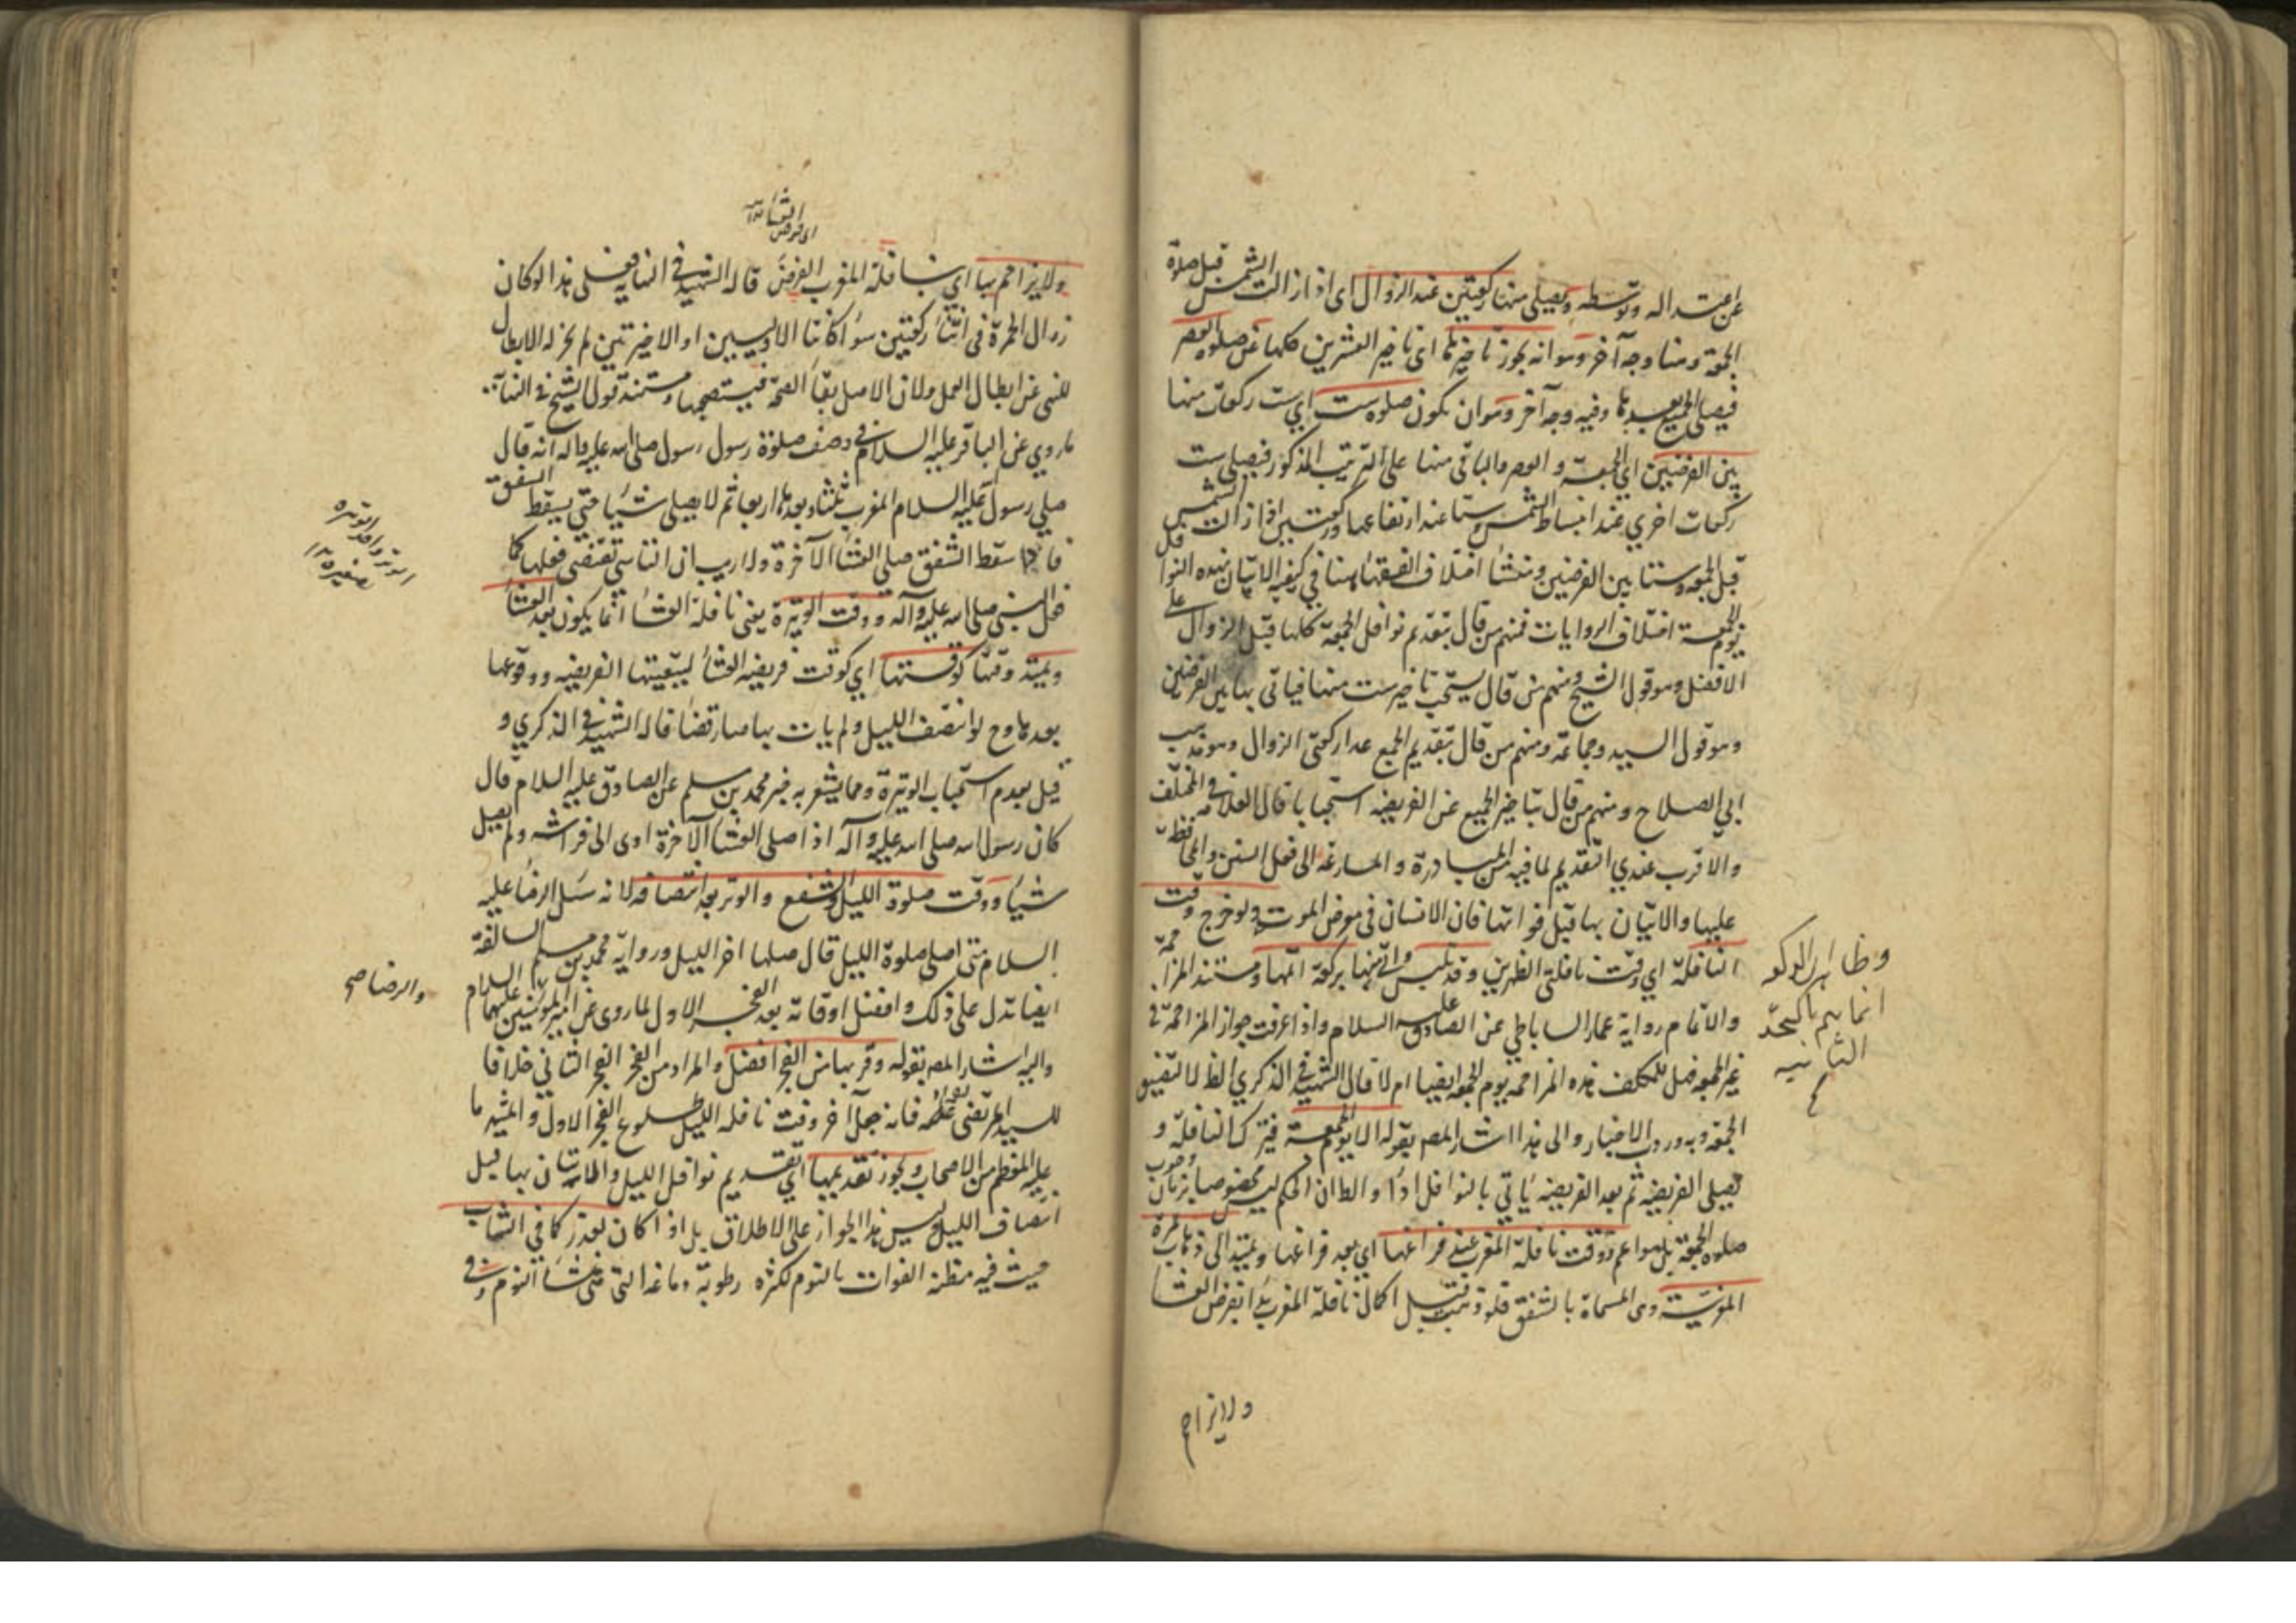 عن اعتداله وتوسطه ويصلي منها ركعتين عند الزوال اى اذا زالت الشمس قبل صلوة
الجمعة وهنا وجه آخر وهوانه يجوز تاخيرها اى تاخير العشرين كلها عن صلوة العصر
فيصلى الجميع بعدها وفيه وجه آخر وهوان يكون صلوة ست اي ست ركعات منها
بين الفرضين اي الجمعة والعصر والباقى منها على الترتيب المذكور فيصلى ست
ركعات اخري عند انبساط الشمس وستا عند ارتفاعها وركعتين اذا زالت الشمس
قبل الجمعة وستا بين الفرضين ومنشأ اختلاف الفقهاء هنا في كيفية الاتيان بهذه النوافل
يوم الجمعة اختلاف الروايات فمنهم من قال بتقديم نوافل الجمعة كلها قبل الزوال على
الافضل وهو قول الشيخ ومنهم من قال يستحب تاخير ست منها فياتى بها بين الفرضين
وهو قول السيد وجماعة ومنهم من قال بتقديم الجميع عدا ركعتى الزوال وهو مذهب
ابي الصلاح ومنهم من قال بتاخير الجميع عن الفريضه استحبابا قال العلامه فى المختلف
والاقرب عندي التقديم لما فيه من المبادرة والمسارعة الى فعل السنن والمحافظة
عليها والاتيان بها قبل فواتها فان الانسان فى معرض الموت ولو خرج وقت
النافلة اي وقت نافلتى الظهرين وقد تلبس منها بركعة اتمها ومستند المزاحمة
والاتمام رواية عمار الساباطي عن الصادق عليه السلام واذا عرفت جواز المزاحمة فى
غير الجمعه فهل للمكلف هذه المزاحمة يوم الجمعة ايضا ام لا قال الشهيد فى الذكري الظ لا لتضيق
الجمعة وبه وردت الاخبار والى هذا اشار المصـ بقوله الا يوم الجمعة فيترك النافلة و
يصلى الفريضة ثم بعد الفريضه ياتي بالنوافل اداء والظ ان الحكم ليس مخصوصا بزمان وجوب
صلوة الجمعة بل هو اعم ووقت نافلة المغرب عند فراغها اي بعد فراغها ويمتد الى ذهاب الحمرة
المغربية وهى المسماة بالشفق فلو ذهبت قبل اكمال نافلة المغرب بدأ بفرض العشا
وظاهر ان الركوع
انما يتم
الثانيه
ولايزاحم
اى فرض العشاء
ولايزاحم بها اي بنافلة المغرب الفرض قاله الشهيد فى النهايه فعلى هذا لو كان
زوال الحمرة فى اثناء ركعتين سواء كانتا الاوليين او الاخيرتين لم يجز له الابطال
للنهى عن ابطال العمل ولان الاصل بقاء الصحة فيستصحبها ومستند قول الشيخ فى النها
ماروي عن الباقر عليه السلام فى وصف صلوة رسول رسول صلى الله عليه واله انه قال
صلي رسول عليه السلام المغرب ثلثا وبعدها اربعا ثم لا يصلى شيئا حتى يسقط الشفق
فاذا سقط الشفق صلى العشاء الآخرة ولا ريب ان التاسي تقتضى فعلها كما
فعل النبى صلى الله عليه وآله ووقت الوتيرة يعنى نافلة العشاء انما يكون بعد العشاء
ويمتد وقتها كوقتها اي كوقت فريضه العشاء لتبعيتها الفريضه ووقوعها
بعدها وح لو انتصف الليل ولم يات بها صارت قضاء قاله الشهيد فى الذكري و
قيل بعدم استحباب الوتيرة ومما يشعر به خبر محمد بن مسلم عن الصادق عليه السلام قال
كان رسول الله صلى الله عليه وآله اذا صلى العشاء الآخرة اوى الى فراشه ولم يصل
شيئا ووقت صلوة الليل والشفع والوتر بعد انتصافه لانه سئل الرضا عليه
السلام متى اصلى صلوة الليل قال صلها اخر الليل ورواية محمد بن مسلم السالفة
ايضا تدل على ذلك وافضل اوقاته بعد الفجر الاول لما روى عن امير المؤمنين عليهما السلام
واليه اشار المصـ بقوله وقربها من الفجر افضل والمراد من الفجر الفجر الثاني خلافا
للسيد المرتضى فانه جعل آخر وقت نافله الليل طلوع الفجر الاول والمشهور ما
عليه المعظم من الاصحاب ويجوز تقديمها اي تقديم نوافل الليل والاتيان بها قبل
انتصاف الليل وليس هذا الجواز على الاطلاق بل اذا كان لعذر كما في الشاب
حيث فيه مظنة الفوات بالنوم لكثرة رطوبة دماغه التى هى منشأ النوم وفى
والرضا صح